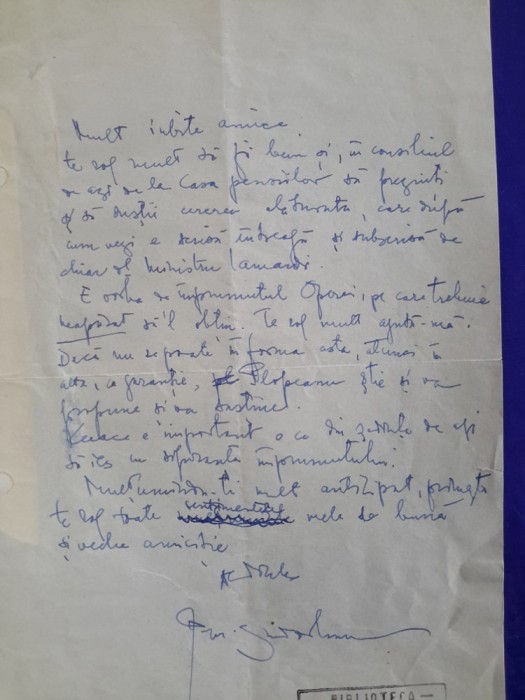 Mult iubite amice
te rog mult să fii bun și, în consiliul
de azi de la Casa pensiilor să prezinti
și să susții cererea alăturată, care după
cum vezi e scrisă întreagă și subscrisă de
chiar dl Ministru Iamandi.
E vorba de împrumutul Operei, pe care trebuie
neapărat să'l obțin. Te rog mult ajută-mă.
Dacă nu se poate în forma asta, atunci în
alta, cu garanție, Plopeanu știe și va
propune și va susține.
Ceeace e important e ca din ședința de azi
să ies cu siguranța împrumutului.
Mulțumindu-ți mult anticipat, primește
te rog toate sentimentele mele de bună
și veche amiciție
BIBLIOTECA